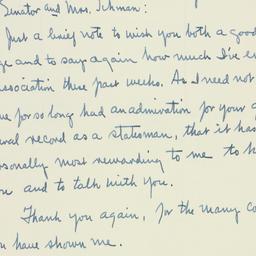 Senator and Mrs. Ichman:
Just a brief note to wish you both a good
ge and to say again how much I've en
sociation these past weeks. As I need not
ve for so long had an admiration for your g
eral record as a statesman, that it has
rsonally most rewarding to me to h
ou and to talk with you.
Thank you again, for the many co
u have shown me.